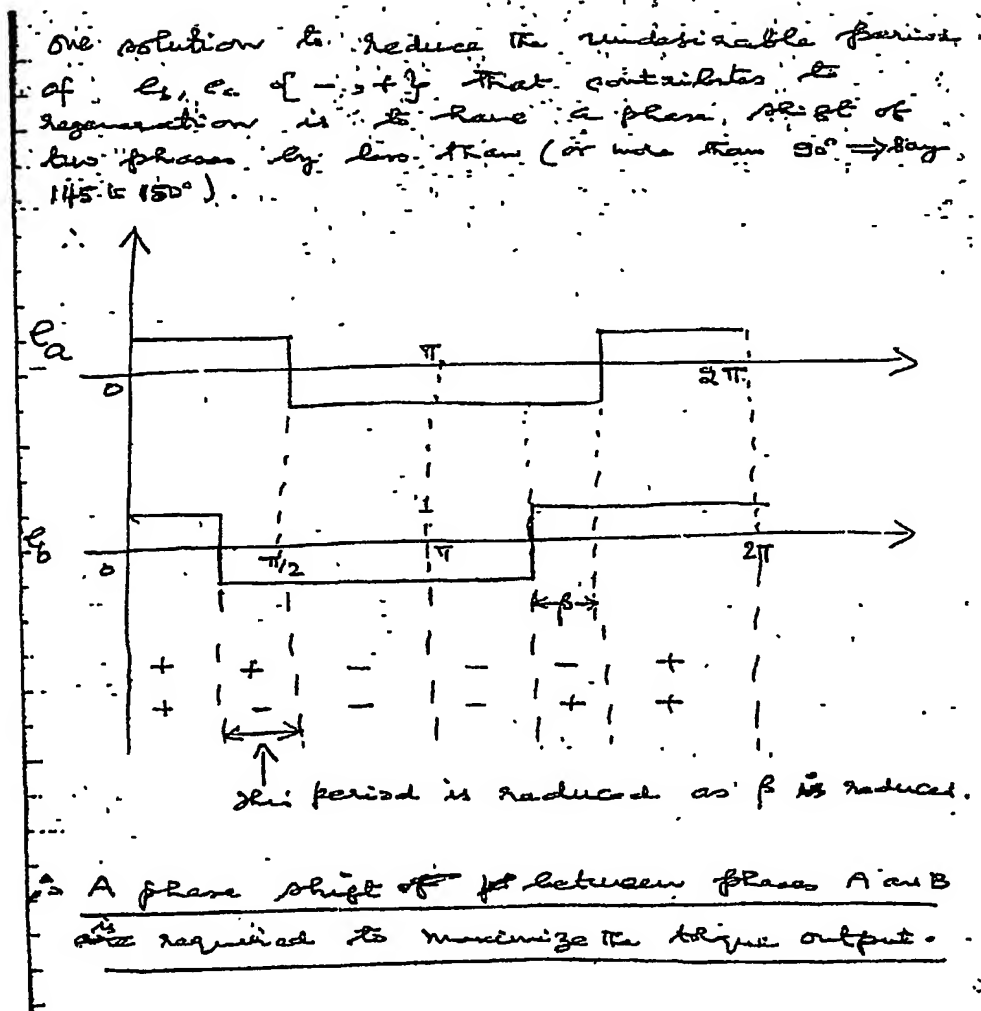 one solution to reduce the undesirable period
of e_b, e_a {-, +} that contributes to
regeneration is to have a phase shift of
two phases by less than (or more than 90° ⇒ say
145 to 150°).
∴
e_a
0 π 2π
e_b
0 π/2 π 2π
β
+ + - - - +
+ - - - + +
This period is reduced as β is reduced.
A phase shift between phases A and B
is required to maximize the torque output.